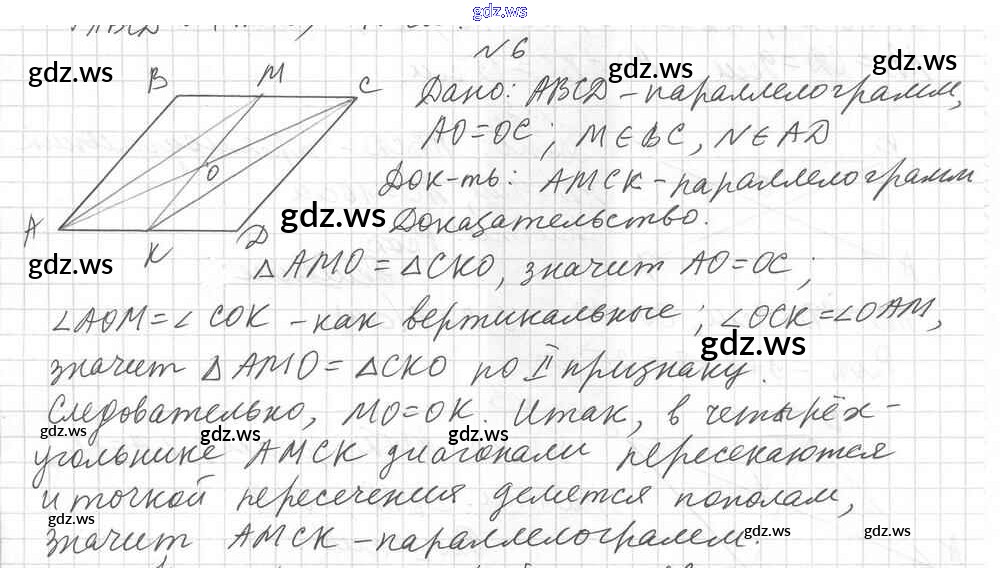 gdz.ws
№6
gdz.ws gdz.ws gdz.ws
B M C
Дано: ABCD – параллелограмм,
AO = OC; M ∈ BC, N ∈ AD
O
Док-ть: AMCK – параллелограмм
A K D
gdz.ws
Доказательство.
gdz.ws
△AMO = △CKO, значит AO = OC;
∠AOM = ∠COK – как вертикальные; ∠OCK = ∠OAM,
gdz.ws
значит △AMO = △CKO по II признаку.
Следовательно, MO = OK. Итак, в четырёх-
gdz.ws gdz.ws gdz.ws
угольнике AMCK диагонали пересекаются
и точкой пересечения делятся пополам,
gdz.ws gdz.ws gdz.ws
значит AMCK – параллелограмм.